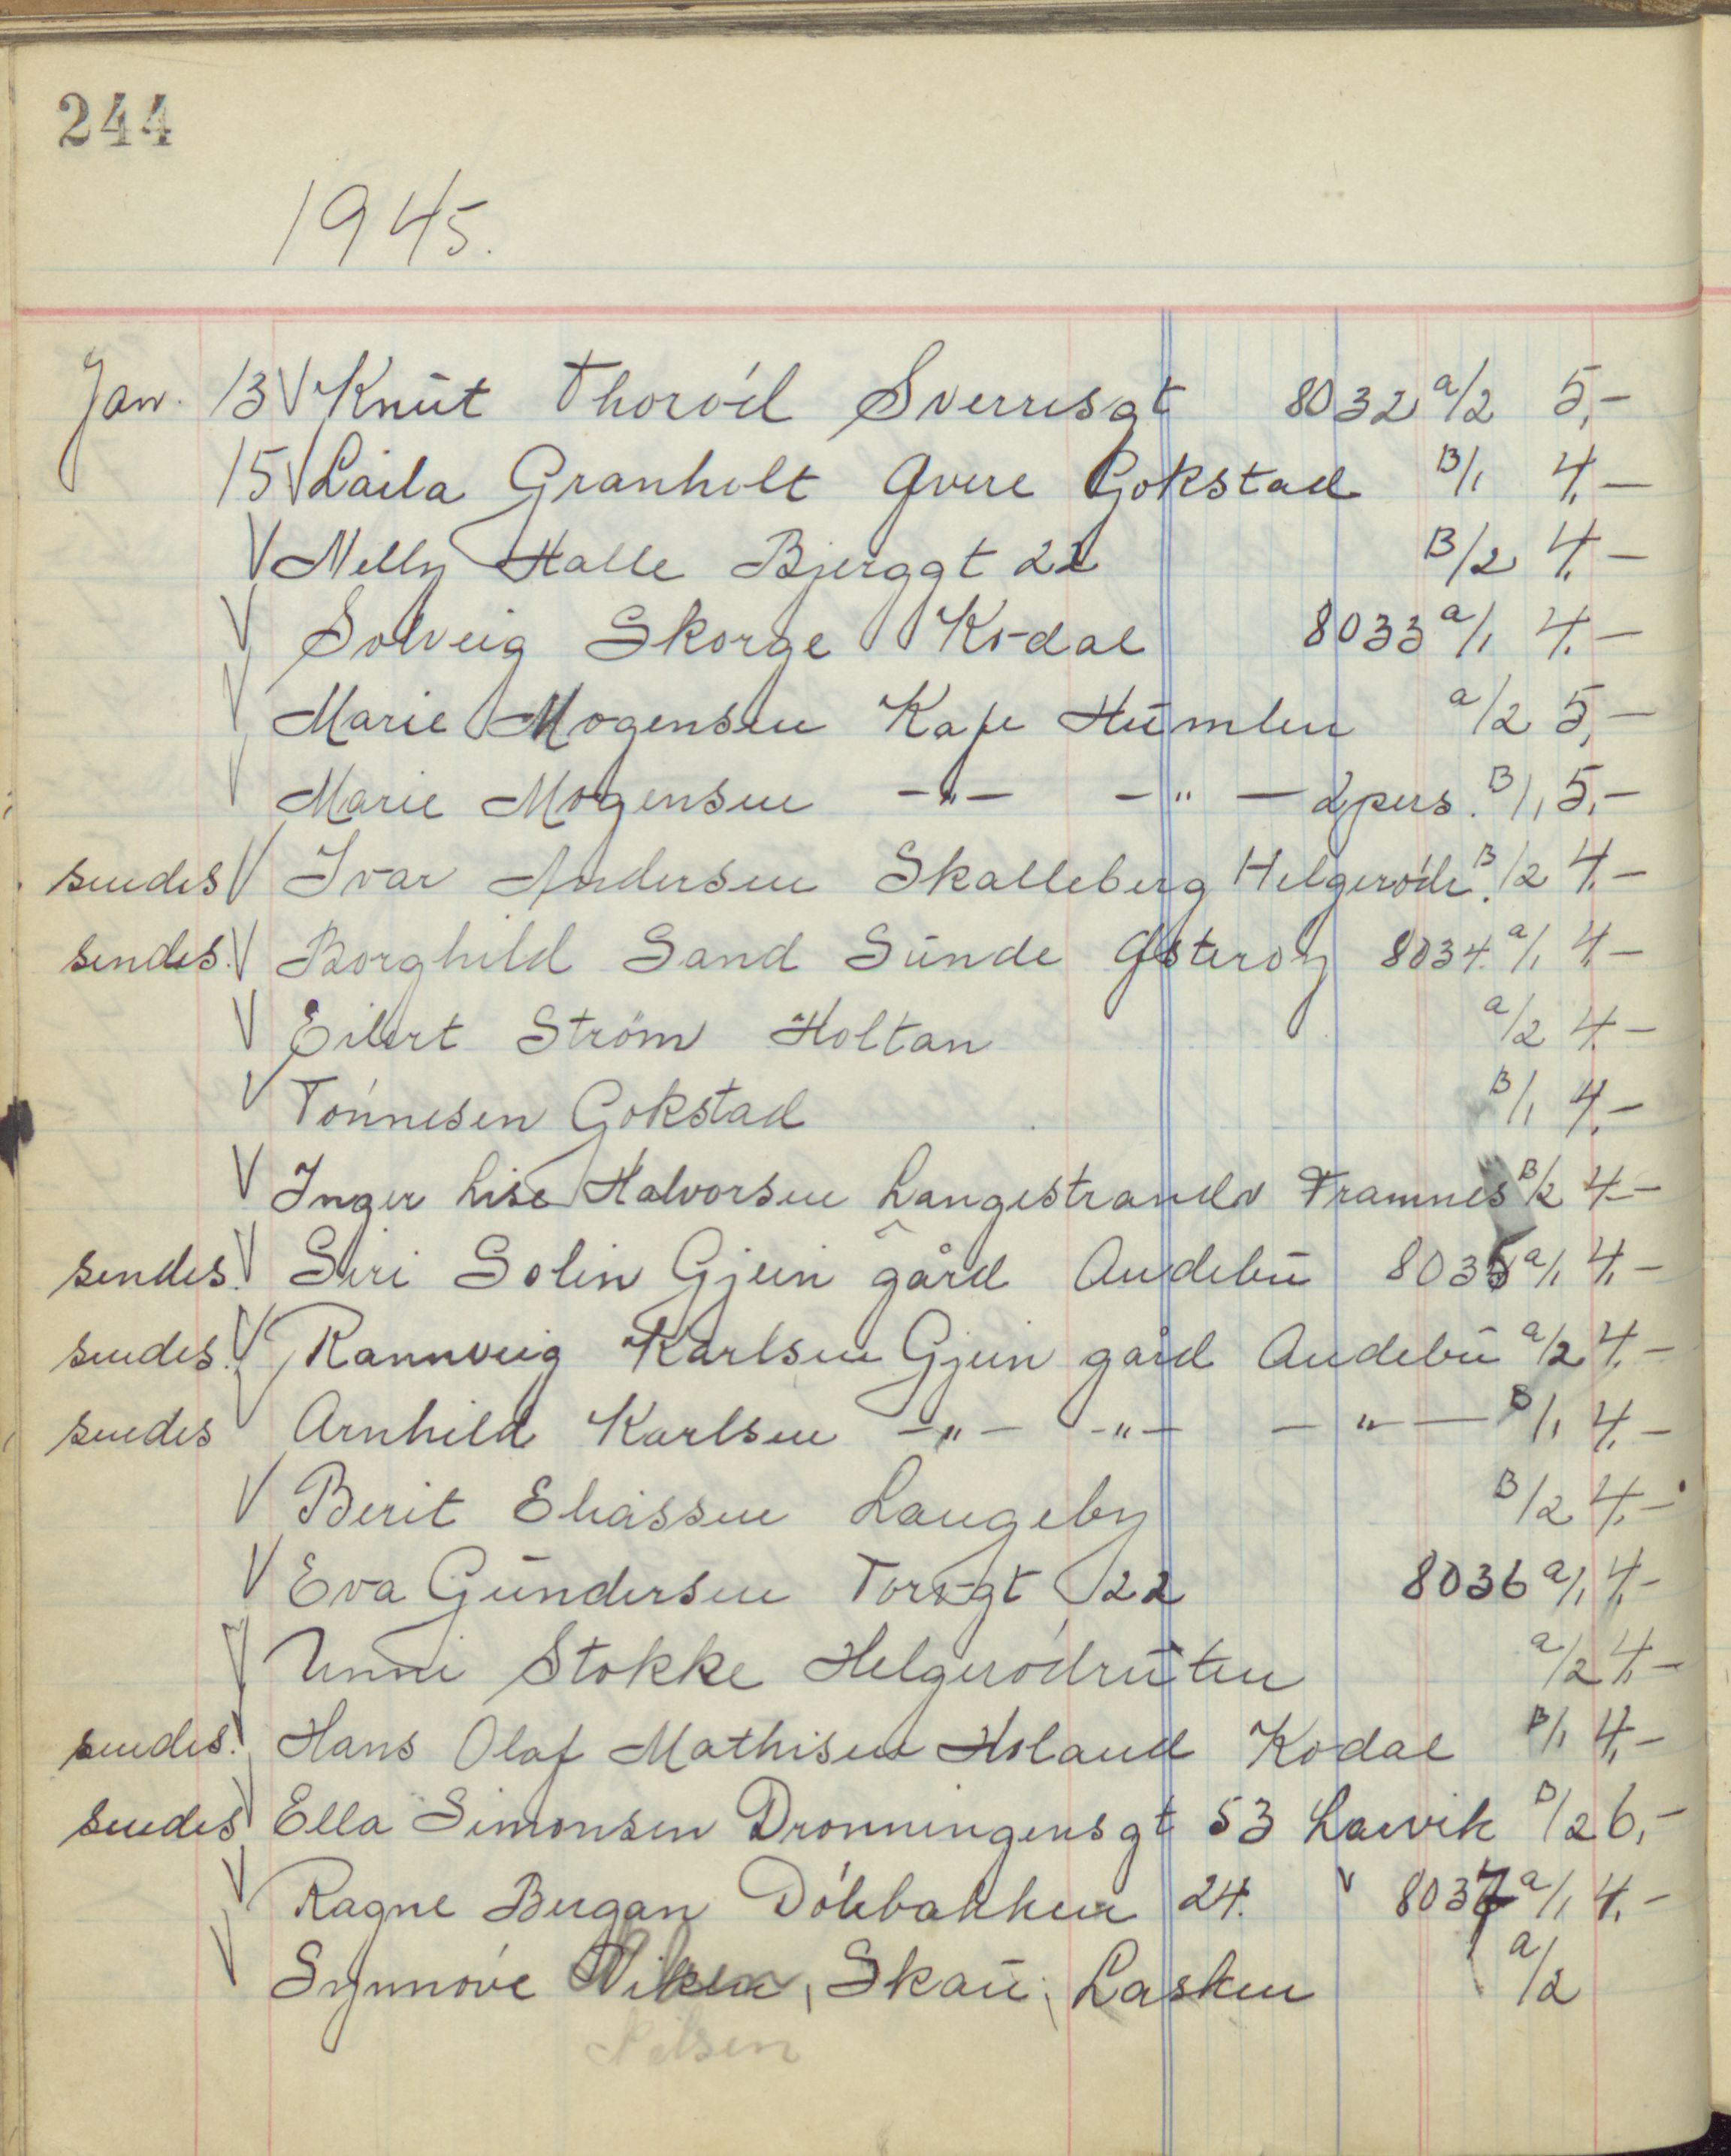 244
1945.
Jan. 13 V Knut Thorød Sverresgt 8032 a/2 5,-
15 V Laila Granholt Øvre Gokstad B/1 4,-
V Nelly Halle Bjerggt 22 B/2 4,-
V Solveig Skorge Kodal 8033 a/1 4,-
V Marie Mogensen Kafe Humlen a/2 5,-
V Marie Mogensen -"- -"- 2 pers. B/1 5,-
sendes V Ivar Andersen Skalleberg Helgerød. B/2 4,-
sendes. V Borghild Sand Sunde Østerøy 8034. a/1 4,-
V Eilert Strøm Holtan a/2 4,-
V Tønnesen Gokstad B/1 4,-
V Inger Lise Halvorsen Langestrandv Framnes B/2 4,-
sendes. V Siri Solin Gjein gård Andebu 8035 a/1 4,-
sendes. V Rannveig Karlsen Gjein gård Andebu a/2 4,-
sendes V Arnhild Karlsen -"- -"- -"- B/1 4,-
V Berit Eliassen Langeby B/2 4,-
V Eva Gundersen Torvgt 22 8036 a/1 4,-
V Unni Stokke Helgerødruten a/2 4,-
sendes. V Hans Olaf Mathisen Holand Kodal B/1 4,-
sendes V Ella Simonsen Dronningensgt 53 Larvik B/2 6,-
V Ragne Bergan Døhlbakken 24. v 8037 a/1 4,-
V Synnøve Skau, Lasken a/2
Nilsen